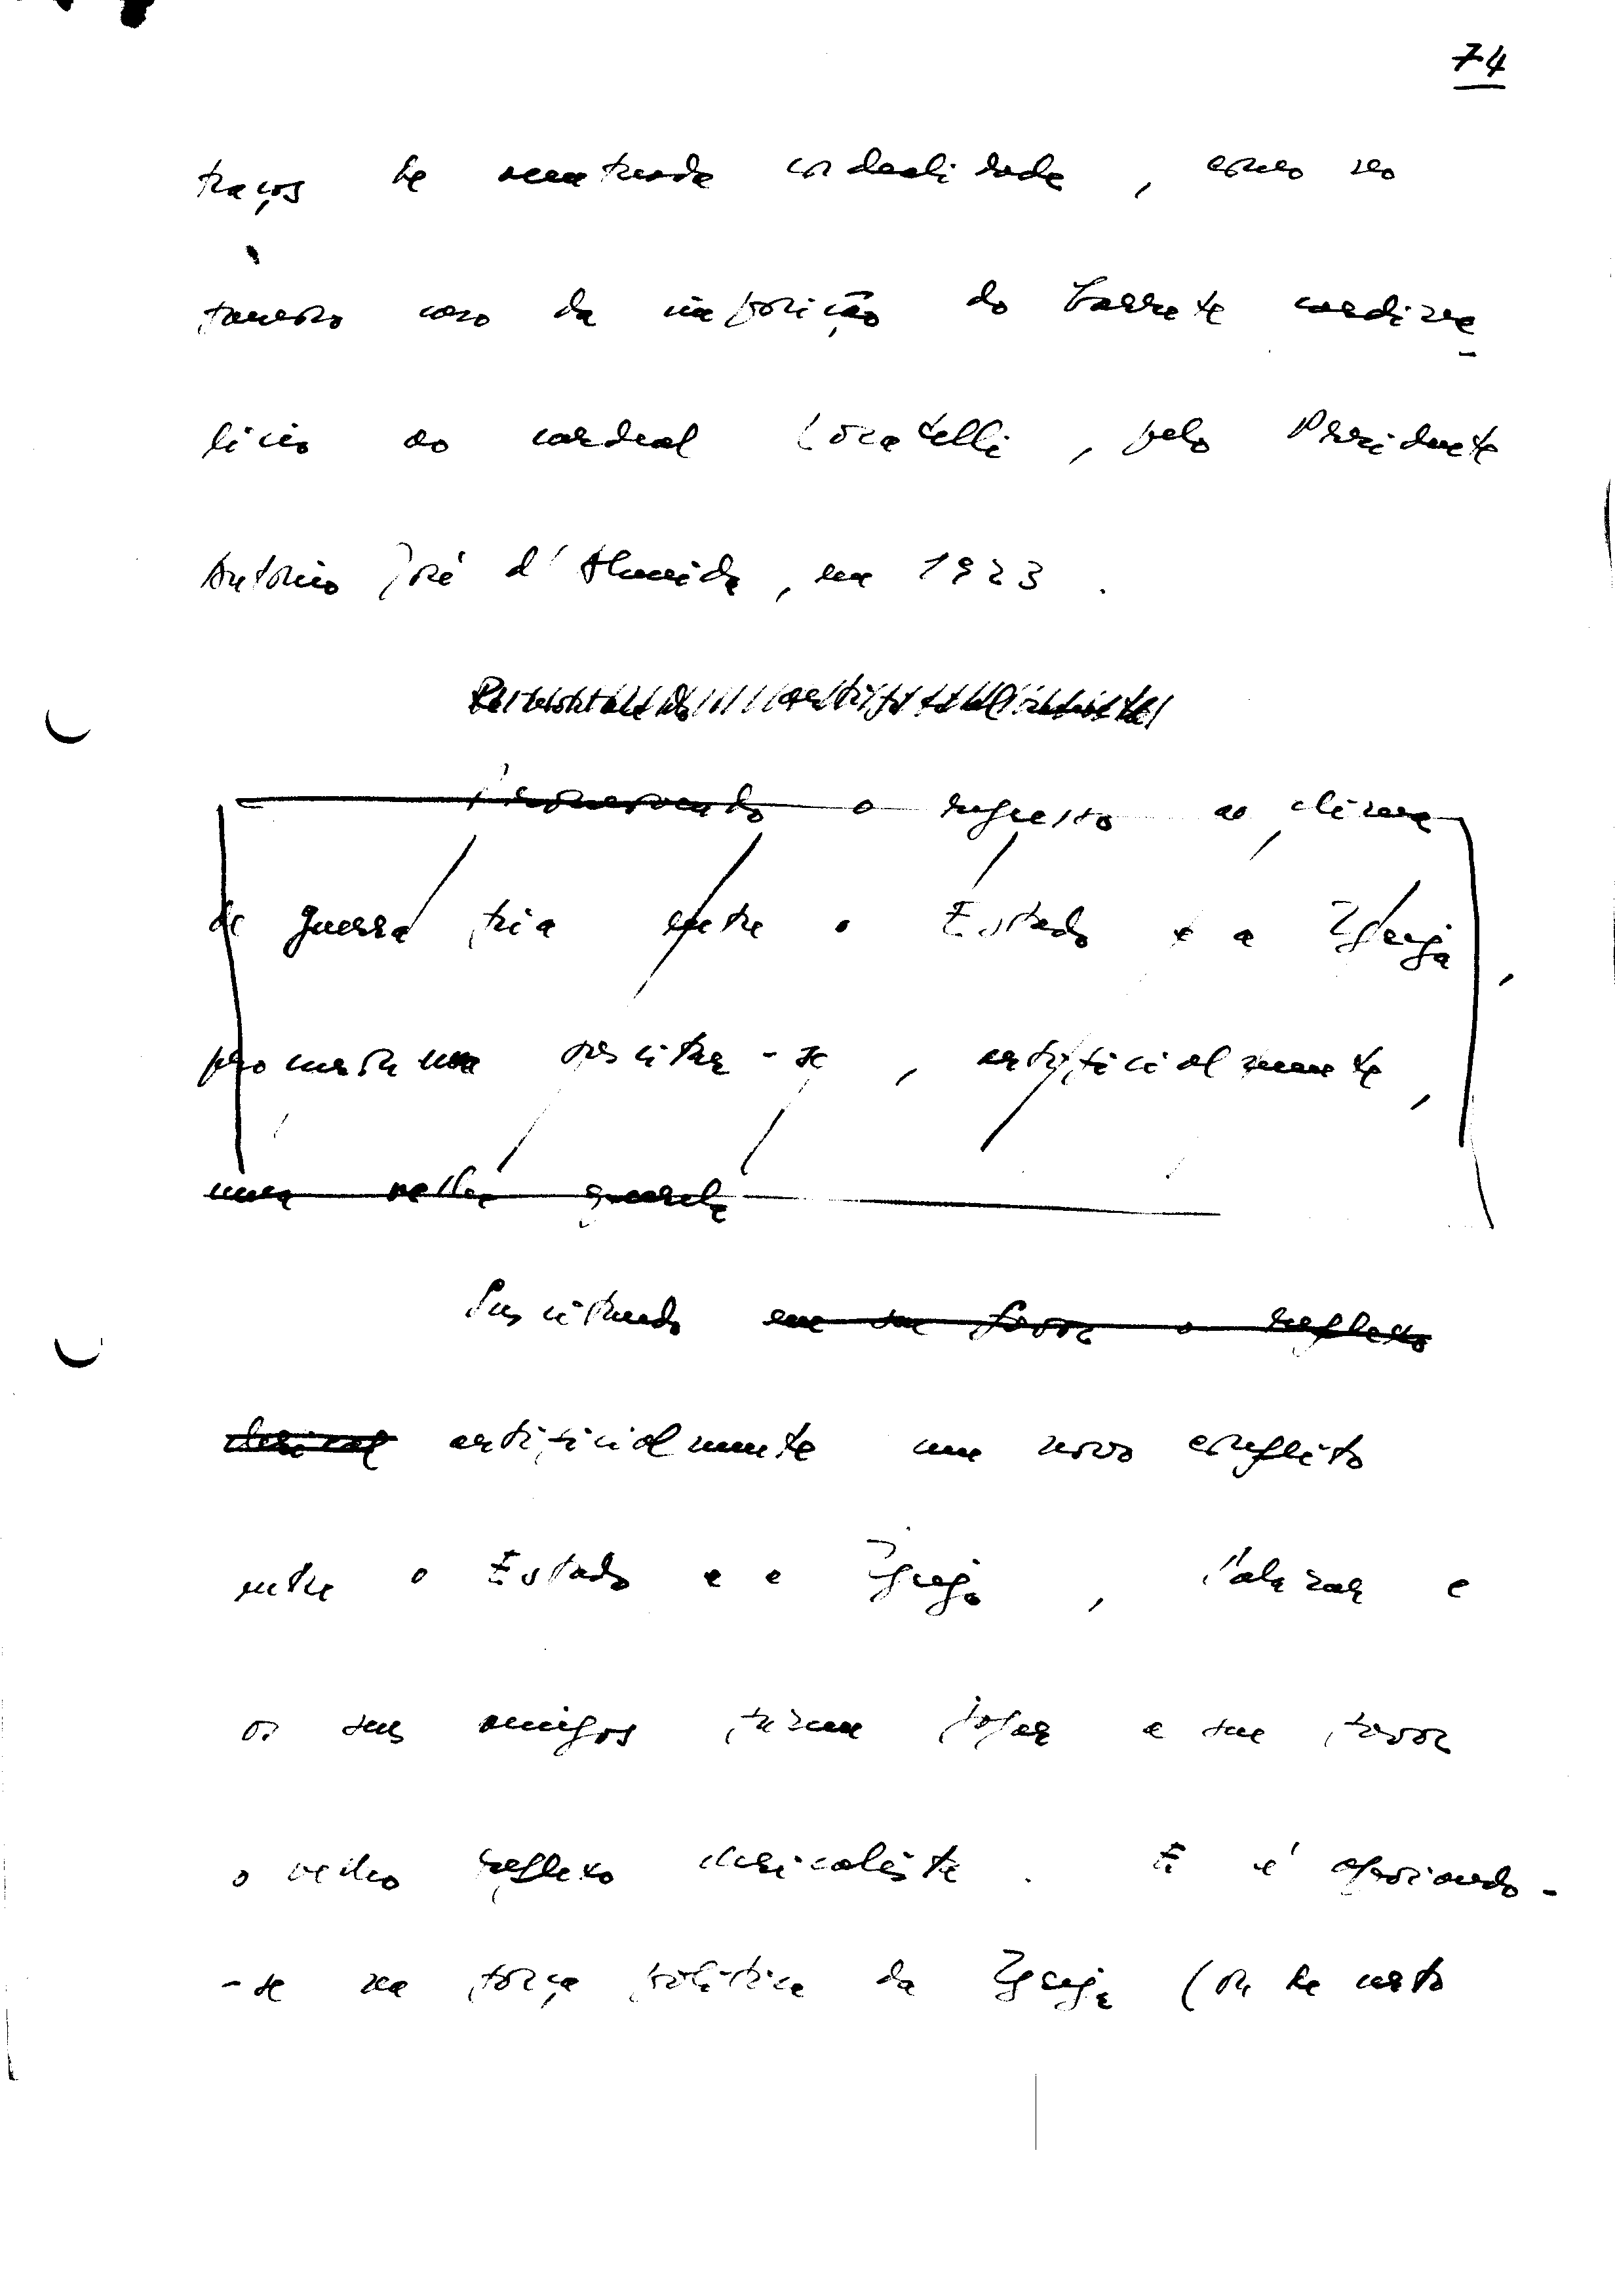 74
traços de acentuada cordealidade, como no
famoso caso da imposição do barrete cardina-
lício ao cardeal Locatelli, pelo Presidente
António José d'Almeida, em 1923.
o regresso ao clima
de guerra fria entre o Estado e a Igreja,
procuram suscitar-se, artificialmente,
uma velha querela
Suscitando em seu favor o reflexo
clerical artificialmente um novo conflito
entre o Estado e a Igreja, Salazar e
os seus amigos fazem jogar a seu favor
o velho reflexo clericalista. E é apoiando-
-se na força política da Igreja (ou de certo